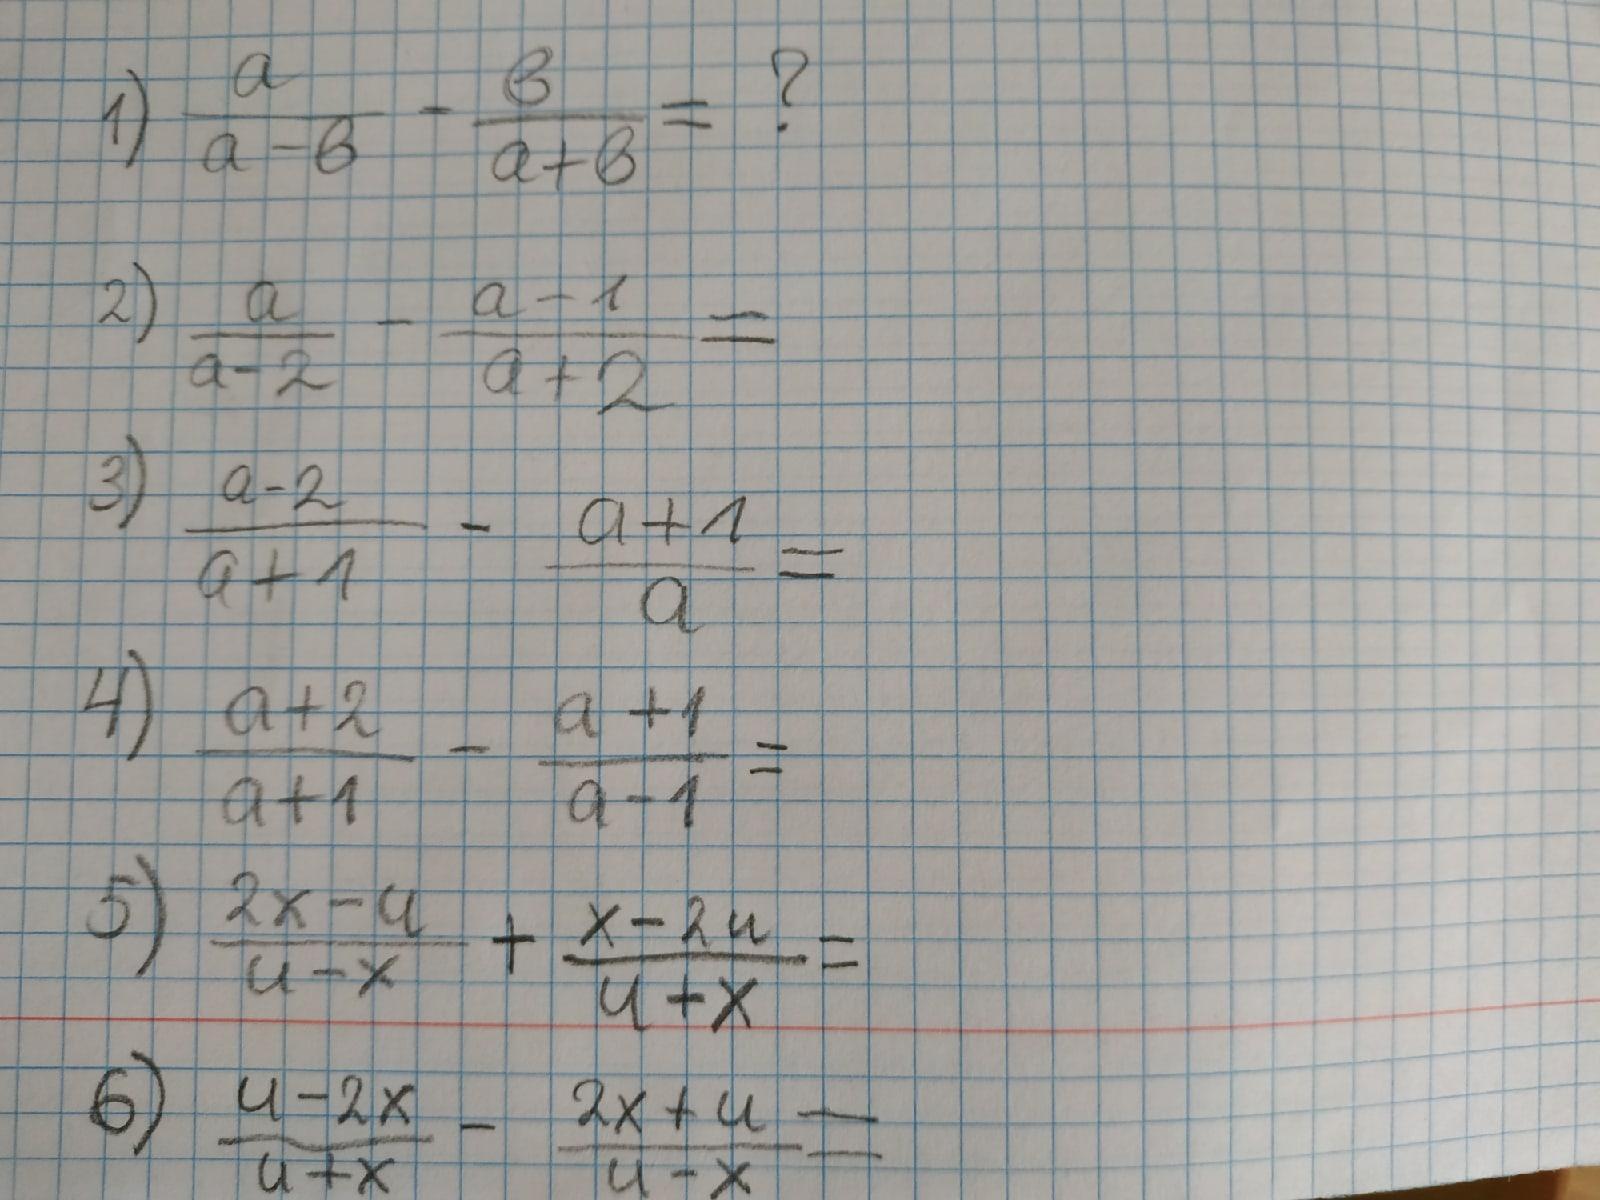 1) a/(a-b) - b/(a+b) = ?
2) a/(a-2) - (a-1)/(a+2) =
3) (a-2)/(a+1) - (a+1)/a =
4) (a+2)/(a+1) - (a+1)/(a-1) =
5) (2x-u)/(u-x) + (x-2u)/(u+x) =
6) (u-2x)/(u+x) - (2x+u)/(u-x) =